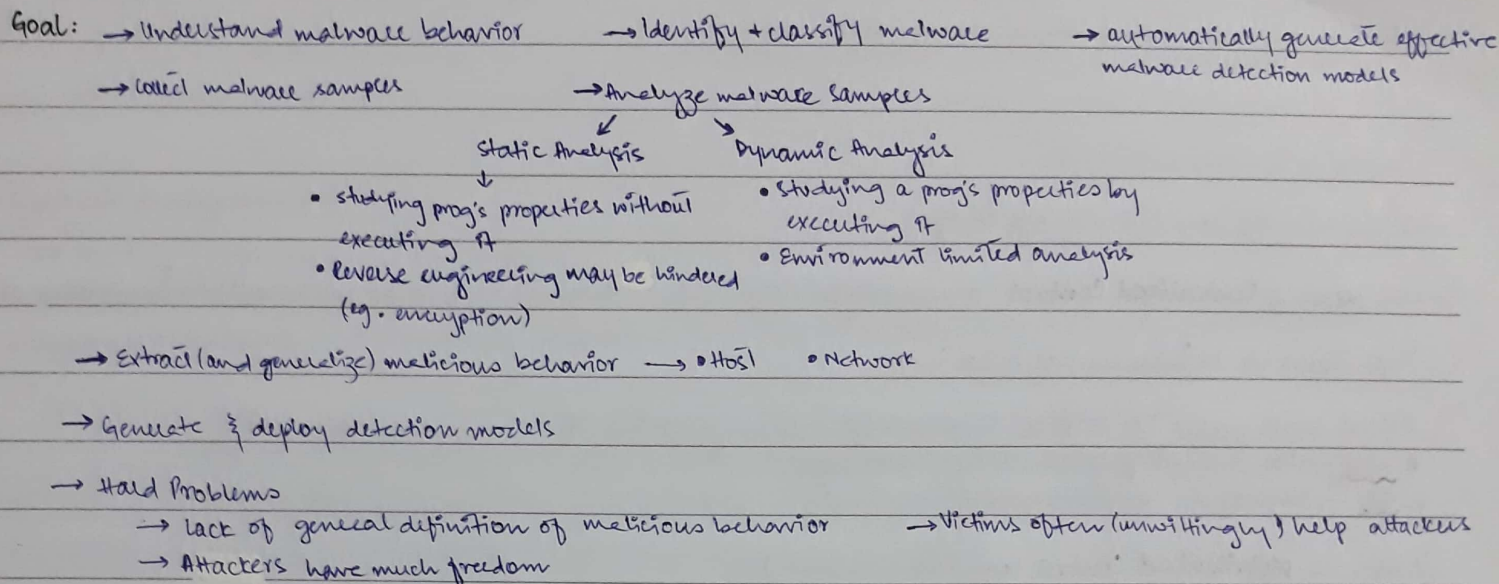 Goal: → Understand malware behavior → Identify + classify malware → automatically generate effective
malware detection models
→ Collect malware samples → Analyze malware samples
↙ ↘
Static Analysis Dynamic Analysis
↓
• studying prog's properties without
executing it
• Reverse engineering may be hindered
(eg. encryption)
• Studying a prog's properties by
executing it
• Environment limited analysis
→ Extract (and generalize) malicious behavior → • Host • Network
→ Generate & deploy detection models
→ Hard Problems
→ Lack of general definition of malicious behavior → Victims often (unwittingly) help attackers
→ Attackers have much freedom